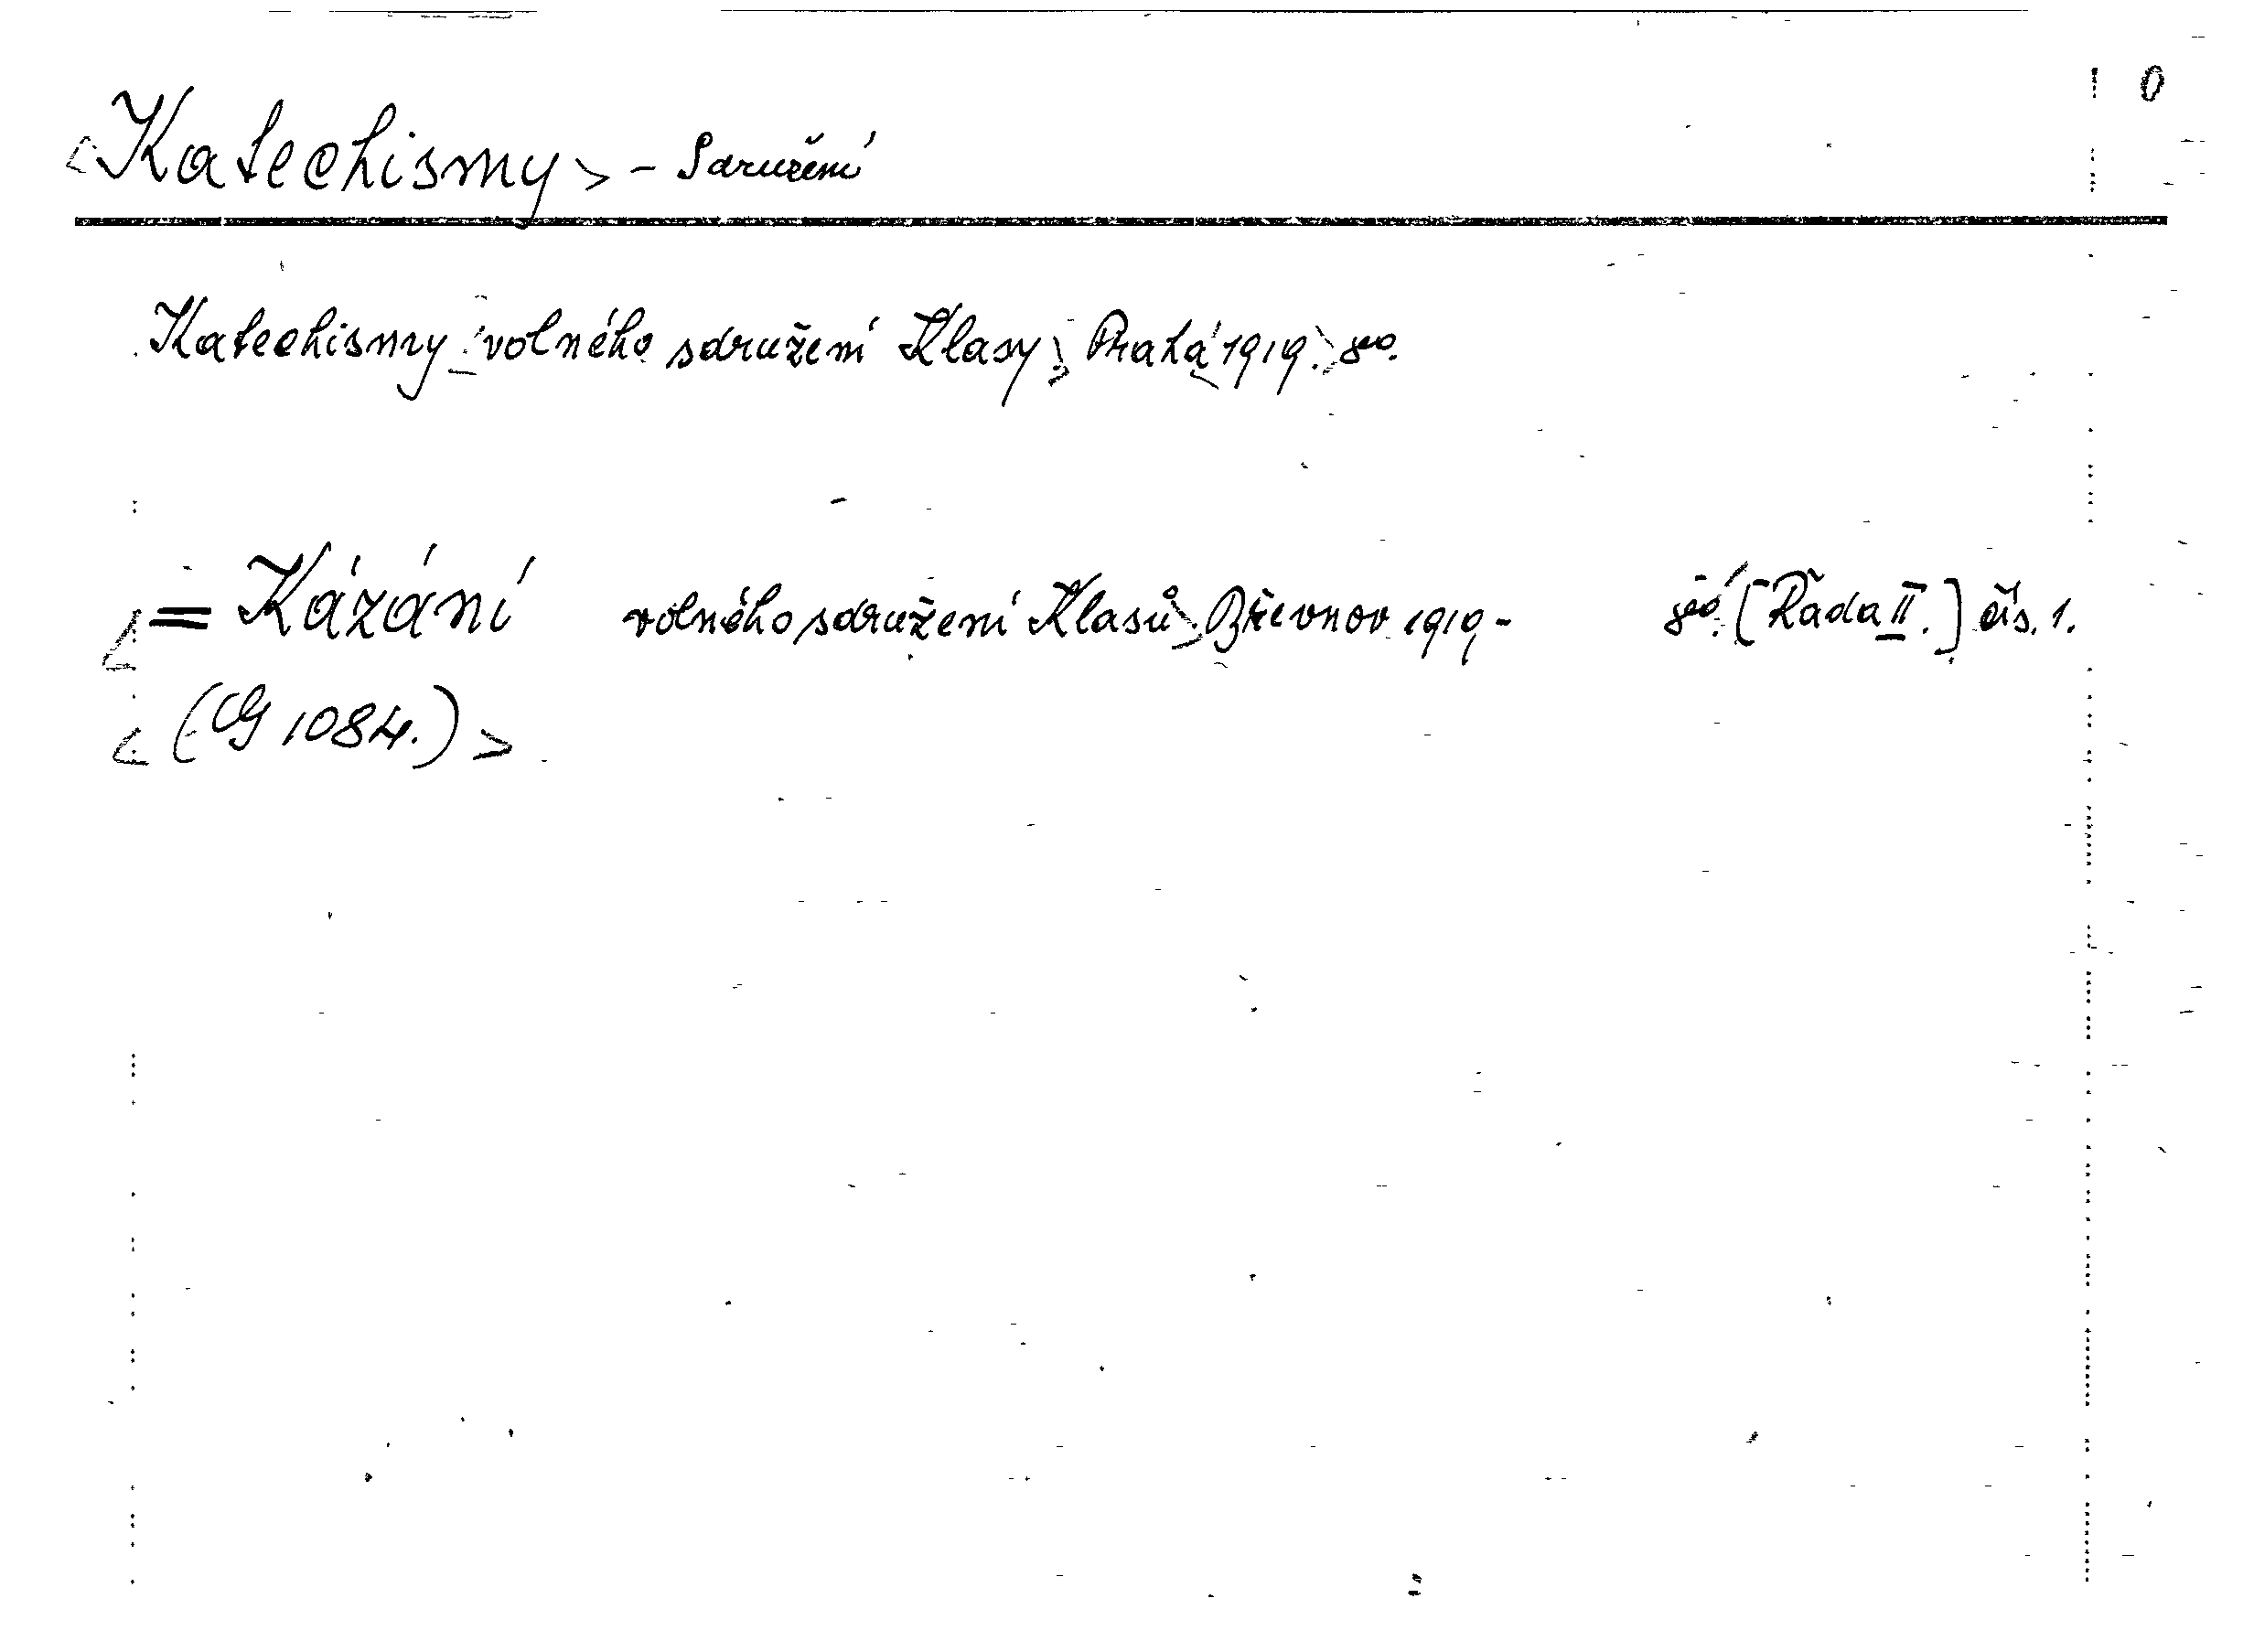 0
<Katechismy> - Sdružení
Katechismy volného sdružení Klasy, Praha 1919. 8°.
= Kázání volného sdružení Klasů, Břevnov 1919- 8°. [Řada II.] čís. 1.
<(Cg 1084.)>